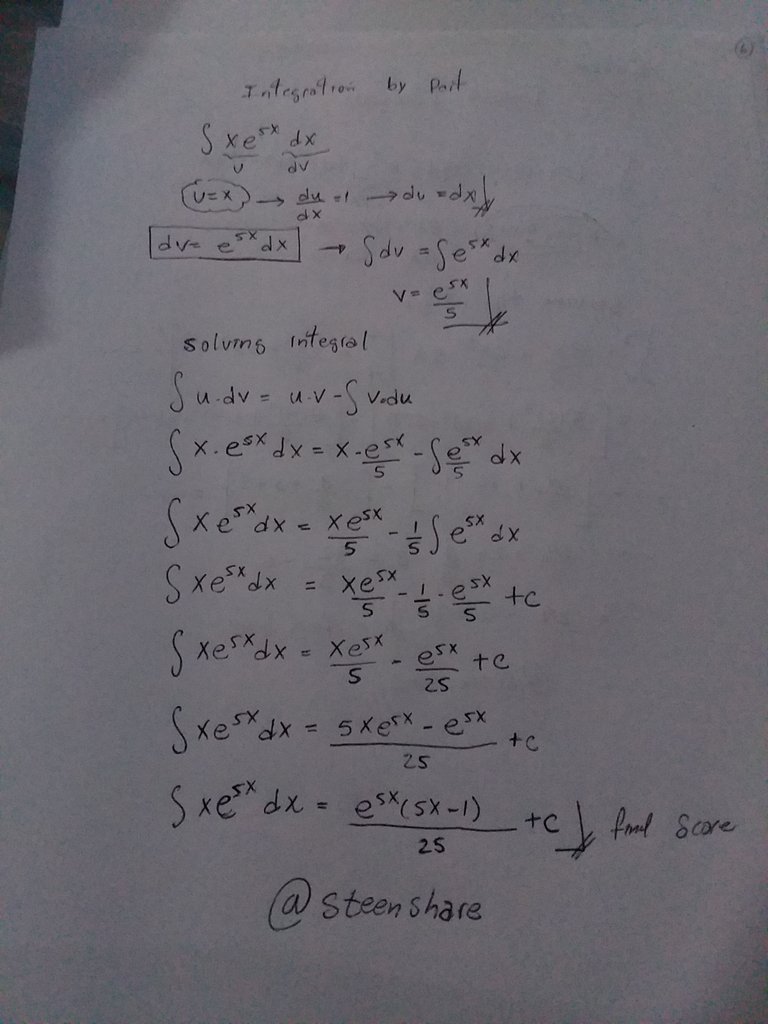 6
Integration by Part
∫ xe^5x dx
u dv
u=x → du/dx =1 → du = dx
dv= e^5x dx → ∫dv = ∫e^5x dx
v= e^5x/5
solving integral
∫ u·dv = u·v - ∫ v·du
∫ x·e^5x dx = x·e^5x/5 - ∫ e^5x/5 dx
∫ xe^5x dx = xe^5x/5 - 1/5 ∫ e^5x dx
∫ xe^5x dx = xe^5x/5 - 1/5 · e^5x/5 + c
∫ xe^5x dx = xe^5x/5 - e^5x/25 + c
∫ xe^5x dx = 5xe^5x - e^5x/25 + c
∫ xe^5x dx = e^5x(5x-1)/25 + c final score
@steenshare